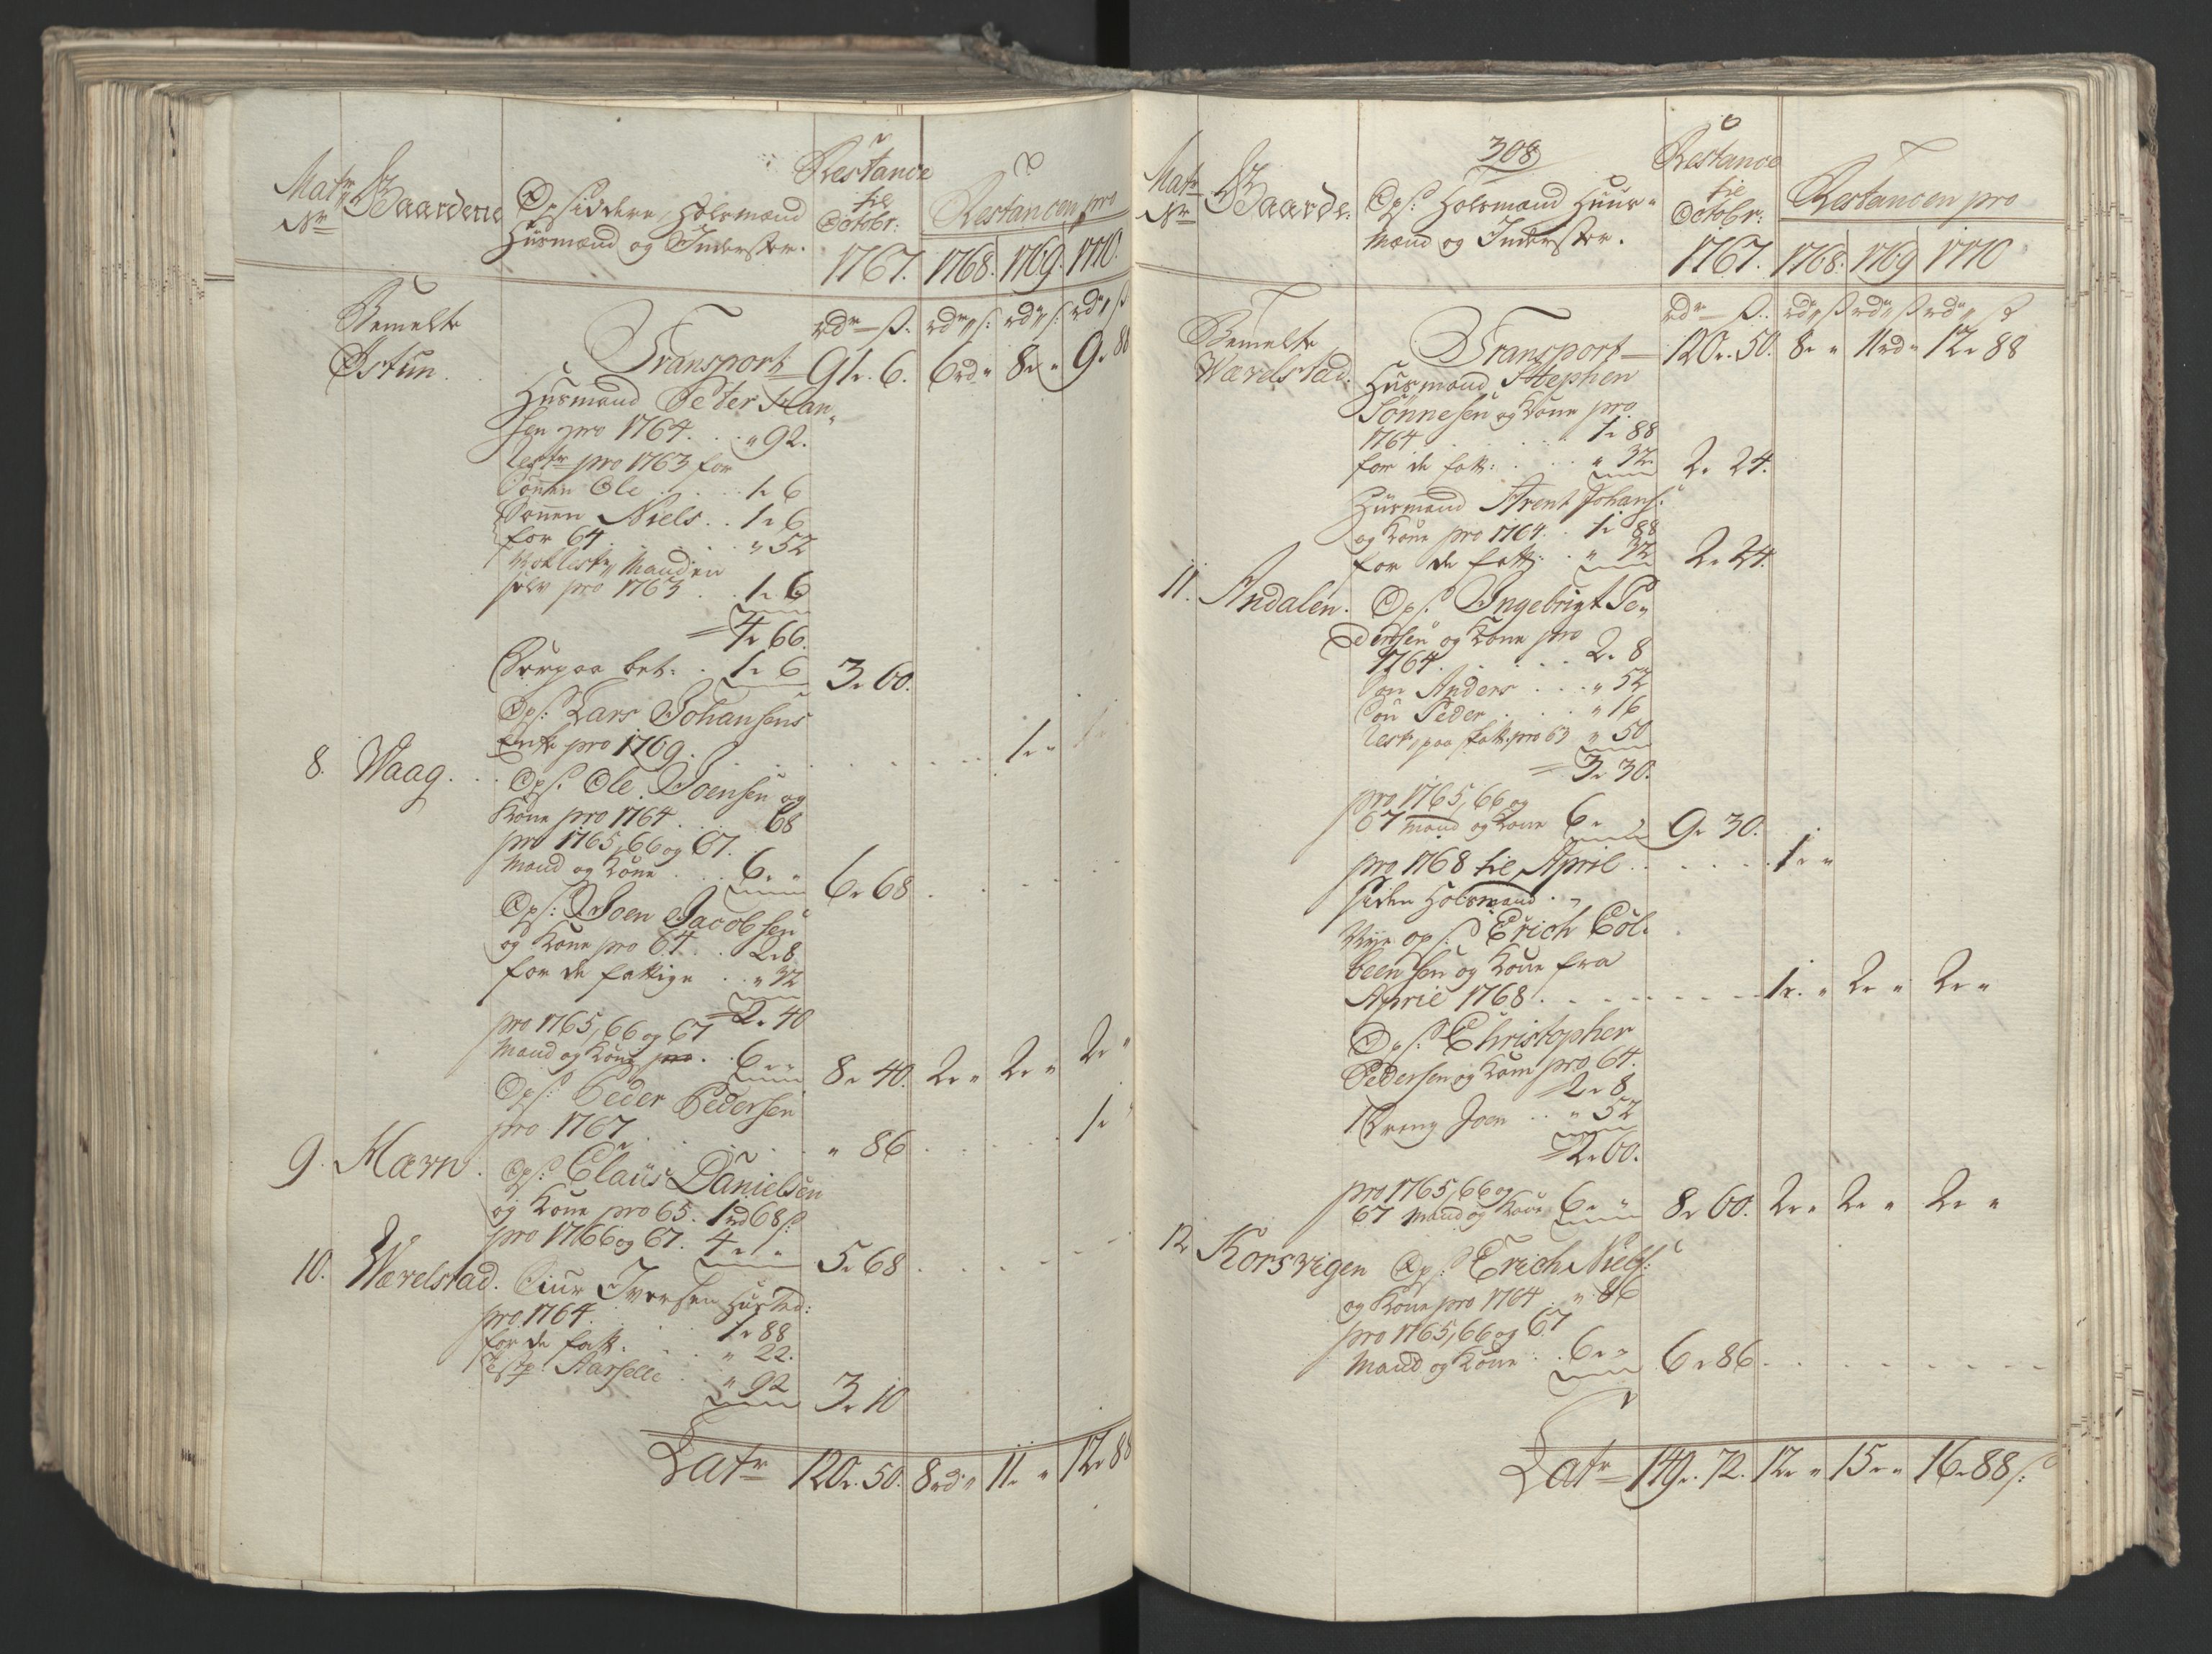 Matr Nr
Gaardene
Opsiddere, Holsmænd
Huusmænd og Inderster.
Restance
til
Octobr:
1767.
Restancen pro
1768. 1769. 1770.
rdr ß. rdr ß: rdr ß: rdr ß
Bemelte
Østun.
Transport 91r. 6. 6rd " 8r " 9r 88
Husmand Peter Han-
sen pro 1764. . . " 92.
rester pro 1763 for
Sønnen Ole . . . 1r 6
Sønnen Niels . . 1r 6
for 64 . . . " 52
Manden
selv pro 1763 . . 1r 6
4r 66.
Herpaa bet: . 1r 6 3r 60.
Ops: Lars Johansens
Enke pro 1769. . . . 1r "
8. Waag. . . Ops. Ole Joensen og
Kone pro 1764 . . . 68
pro 1765, 66 og 67.
Mand og Kone . . 6r " 6r 68
Ops: Joen Jacobsen
og Kone pro 64 . . 2r 8
for de fattige . . " 32
2r 40
pro 1765, 66 og 67
Mand og Kone pro . 6r " 8r 40. 2r " 2r " 2r "
Ops: Peder Pedersen
pro 1767 . . . " 86 . . . 1r "
9. Mærn . Ops: Claus Danielsen
og Kone pro 65. 1rd 68ß:
pro 1766 og 67. 4r " 5r 68 . . .
10. Wærelstad. Siur Iversen Husted:
pro 1764. . . . 1r 88
for de fatt: . . " 22.
. . " 92 3r 10
Latr 120r. 50. 8rd " 11r " 12r 88
308
Matr Nr
Gaarde:
Ops: Holsmænd Huus-
mænd og Inderster.
Restance
til
Octobr:
1767.
Restancen pro
1768. 1769 1770
rdr ß. rdr ß rdr ß rdr ß
Bemelte
Wærelstad.
Transport 120r. 50. 8r " 11rd " 12r 88
Husmand Stephen
Sønnesen og Kone pro
1764 . . . . 1r 88
for de fatt: . . . " 32 2r 24.
Husmand Arent Johans:
og Kone pro 1764. . 1r 88
for de fatt: . " 32 2r 24.
11. Andalen. Ops: Ingebrigt Pe-
dersen og Kone pro
1764. . . . . 2r 8
Søn Anders . . . " 52
Søn Peder . . . " 16
rest: paa skatt: pro 63 " 50
3r 30.
pro 1765, 66 og
67 Mand og Kone 6r " 9r 30.
pro 1768 til April . . . . . 1r "
siden Holsmand . "
Nye ops: Erich Col-
beensen og Kone fra
April 1768. . . . . . 1r. " 2r " 2r "
Ops: Christopher
Pedersen og Kone pro 64.
2r 8
1 Dreng Joen . . " 52
2r 60.
pro 1765, 66 og
67 Mand og Kone 6r " 8r 60. 2r " 2r " 2r "
12 Korsvigen Ops: Erich Niels:
og Kone pro 1764 . . " 86
pro 1765, 66 og 67
Mand og Kone . . 6r " 6r 86 . . . . .
Latr 149r. 72. 12r " 15r " 16r 88 ß: